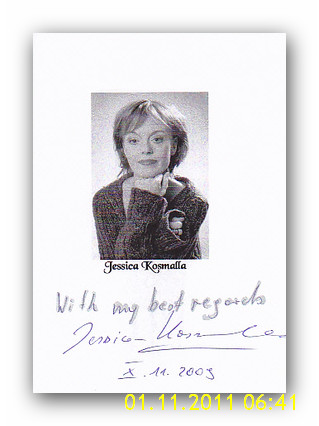 Jessica Kosmalla
With my best regards
Jessica Kosmalla
X.11.2009
01.11.2011 06:41